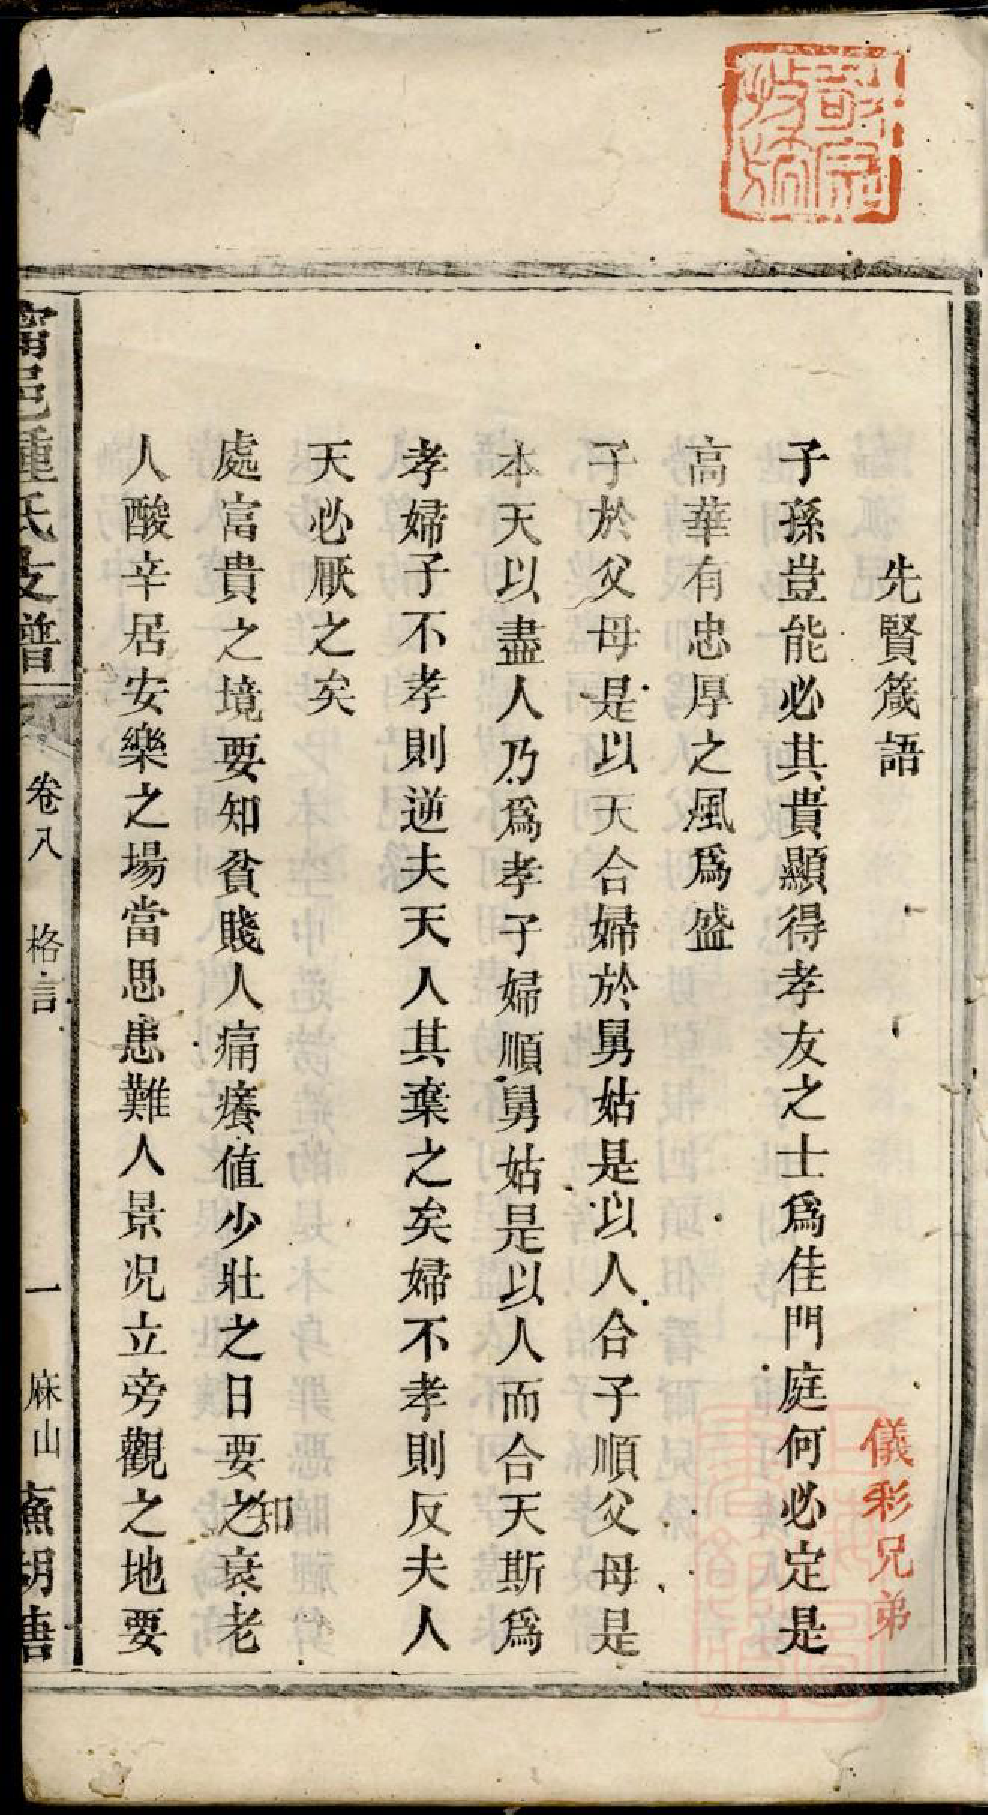 先賢箴語
儀彩兄弟
子孫豈能必其貴顯得孝友之士爲佳門庭何必定是
高華有忠厚之風爲盛
子於父母是以天合婦於舅姑是以人合子順父母是
本天以盡人乃爲孝子婦順舅姑是以人而合天斯爲
孝婦子不孝則逆夫天人其棄之矣婦不孝則反夫人
天必厭之矣
處富貴之境要知貧賤人痛癢值少壯之日要之衰老
知
人酸辛居安樂之場當思患難人景况立旁觀之地要
甯邑鍾氏支譜
卷八
格言
一
麻山